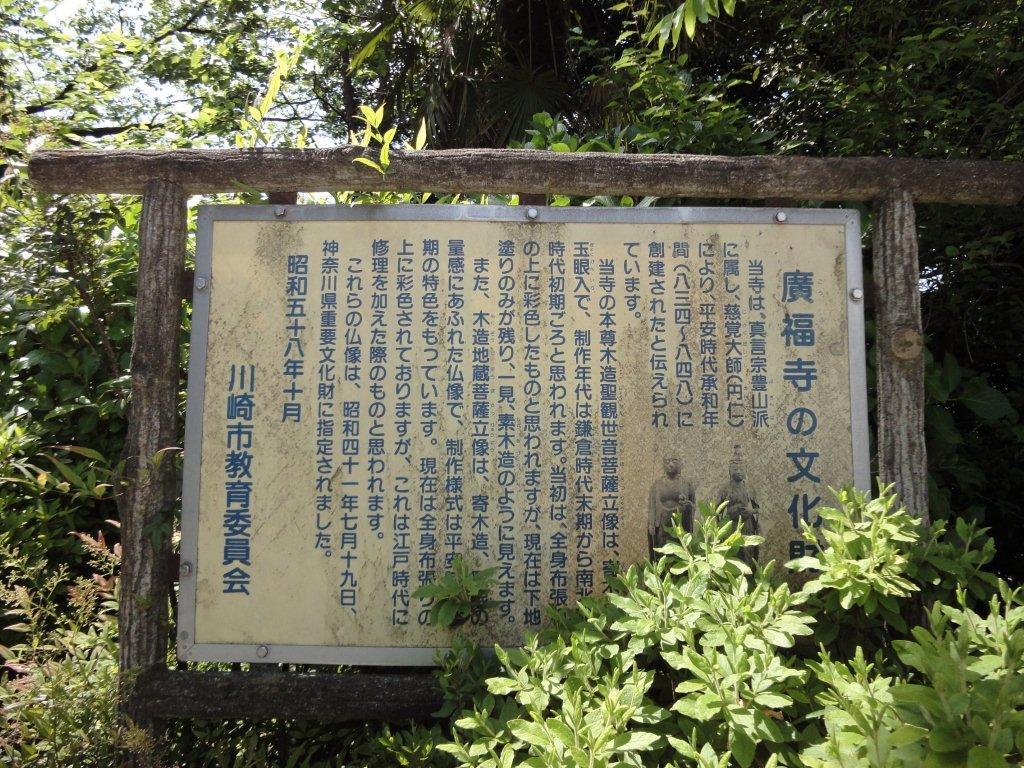 廣福寺の文化財
当寺は、真言宗豊山派
に属し、慈覚大師(円仁)
により、平安時代承和年
間(八三四~八四八)に
創建されたと伝えられ
ています。
当寺の本尊木造聖観世音菩薩立像は、寄木
玉眼入で、制作年代は鎌倉時代末期から南北
時代初期ごろと思われます。当初は、全身布張
の上に彩色したものと思われますが、現在は下地
塗りのみが残り、一見、素木造のように見えます。
また、木造地蔵菩薩立像は、寄木造、の
量感にあふれた仏像で、制作様式は平安
期の特色をもっています。現在は全身布張りの
上に彩色されておりますが、これは江戸時代に
修理を加えた際のものと思われます。
これらの仏像は、昭和四十一年七月十九日、
神奈川県重要文化財に指定されました。
昭和五十八年十月
川崎市教育委員会